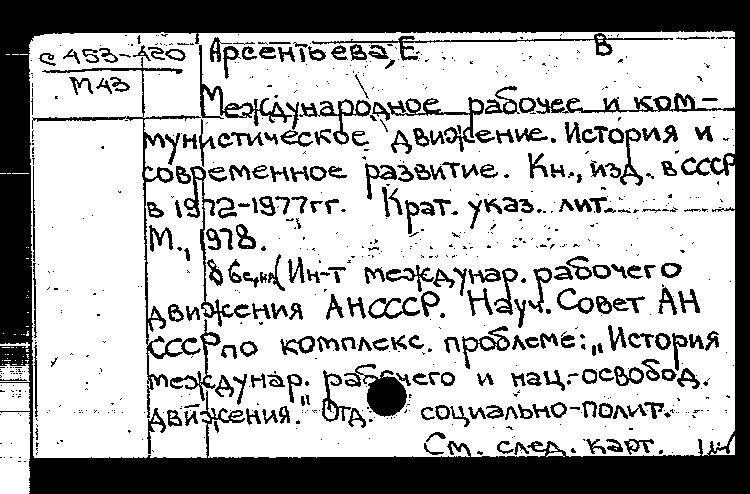 с 453-420
М43
Арсентьева, Е В
Международное рабочее и ком-
мунистическое движение. История и
современное развитие. Кн., изд. в СССР
в 1972-1977гг. Крат. указ. лит.
М., 1978.
(Ин-т междунар. рабочего
движения АНСССР. Науч. Совет АН
СССР по комплекс. проблеме: „История
междунар. рабочего и нац.-освобод.
движения." Отд. социально-полит.
См. след. карт.